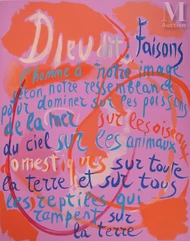 M
Auction
Dieu dit, faisons
l'homme à notre image
selon notre ressemblance
pour dominer sur les poissons
de la mer sur les oiseaux
du ciel sur les animaux
omestiques sur toute
la terre et sur tous
les reptiles qui
rampent sur
la terre